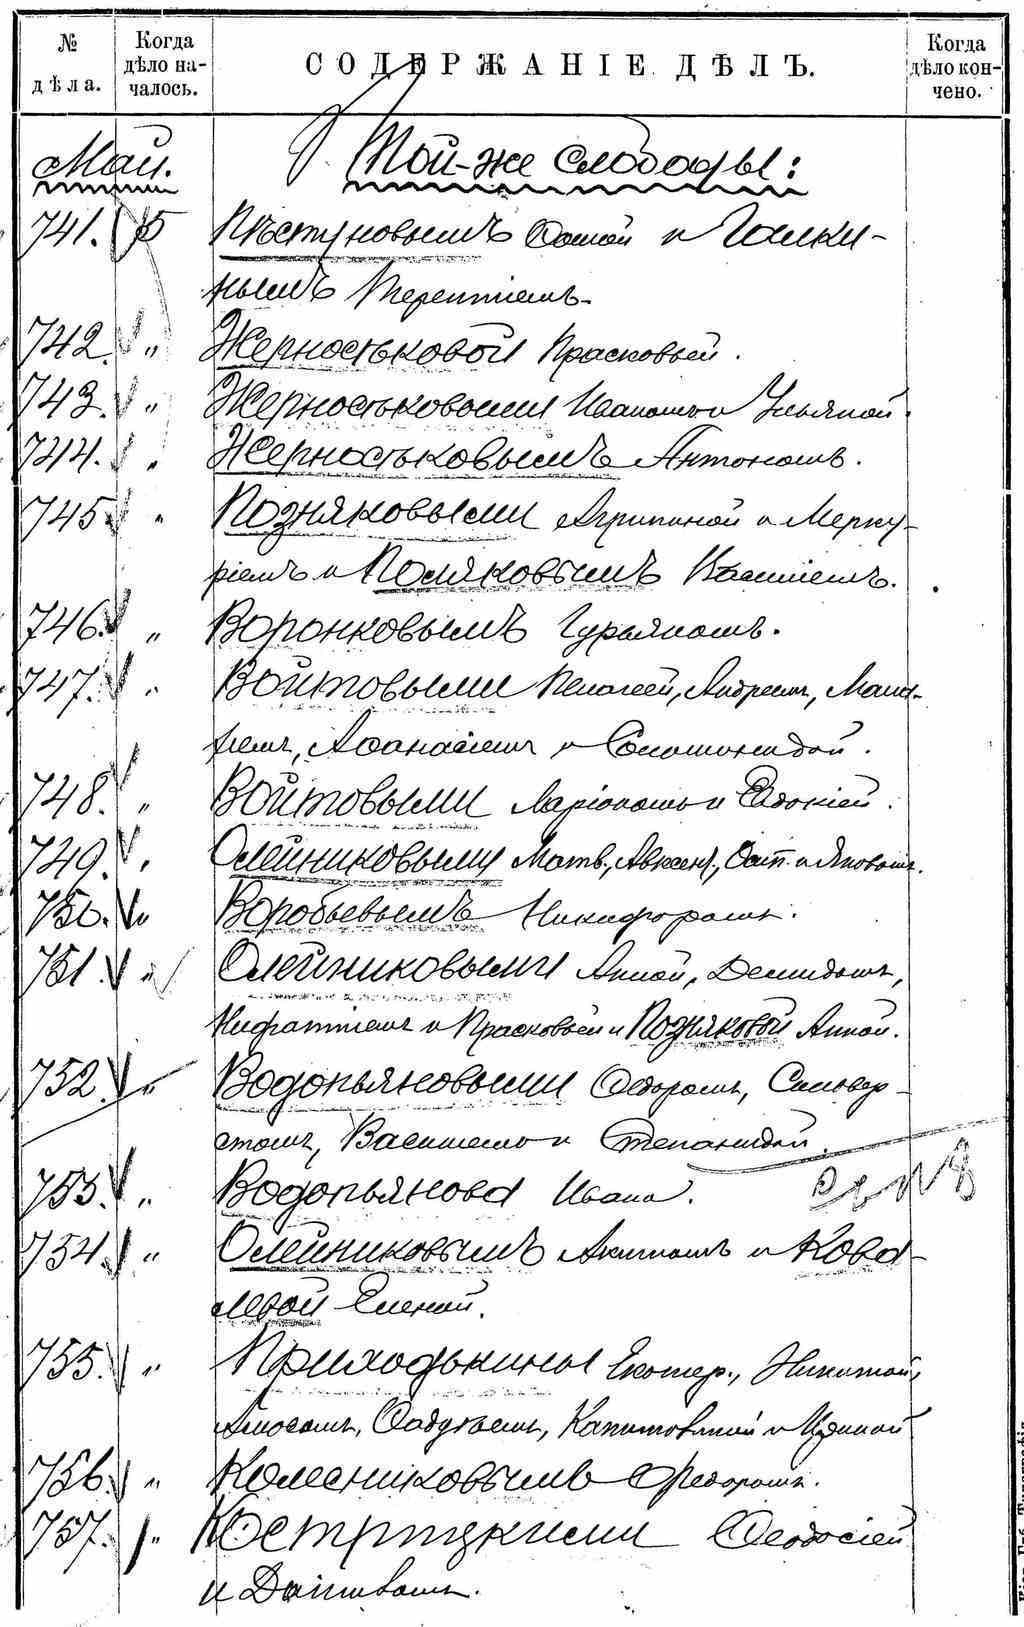 № дѣла.
Когда дѣло началось.
СОДЕРЖАНІЕ ДѢЛЪ.
Когда дѣло кончено.
Май. Той-же слободы:
741. 5 Пѣстуновымъ Ѳомой и Галки-
нымъ Терентіемъ.
742. „ Жерностьковой Прасковьей.
743. „ Жерностьковыми Иваномъ и Ульяной.
744. „ Жерностьковымъ Антономъ.
745. „ Позняковыми Агрипиной и Мерку-
ріемъ и Поляковымъ Василіемъ.
746. „ Воронковымъ Гурьяномъ.
747. „ Войтовыми Пелагеей, Андреемъ,
Аѳанасіемъ и Соломонидой.
748. „ Войтовыми Ларіономъ и Евдокіей.
749. „ Олейниковыми Матв., Авксент., Осип. и Яковомъ.
750. „ Воробьевымъ Никифоромъ.
751. „ Олейниковыми Анной, Демидомъ,
Нифантіемъ и Прасковьей и Позняковой Анной.
752. „ Водопьяновыми Ѳедоромъ, Сильвер-
стомъ, Василіемъ и Степанидой.
753. „ Водопьянова Ивана.
754. „ Олейниковымъ Акимомъ и Кова-
левой Еленой.
755. „ Приходькины Екатер., Никитой,
Амосомъ, Капитолиной и Ириной
756. „ Колесниковымъ Ѳедоромъ.
757. „ Ѳеодосіей
и Даниломъ.